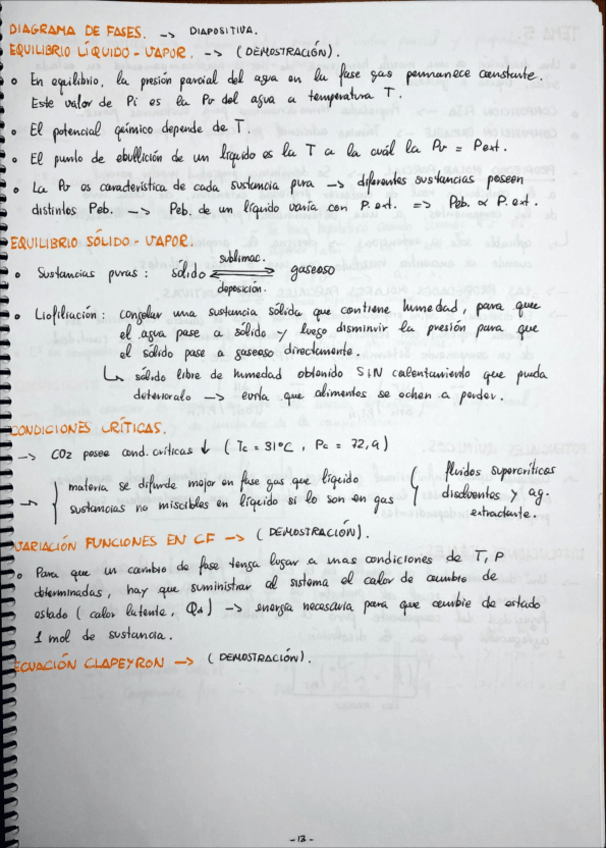 DIAGRAMA DE FASES. --> DIAPOSITIVA.
EQUILIBRIO LÍQUIDO - VAPOR. --> (DEMOSTRACIÓN).
• En equilibrio, la presión parcial del agua en la fase gas permanece constante.
Este valor de Pi es la Pv del agua a temperatura T.
• El potencial químico depende de T.
• El punto de ebullición de un líquido es la T a la cuál la Pv = Pext.
• La Pv es característica de cada sustancia pura --> diferentes sustancias poseen
distintos Peb. --> Peb. de un líquido varía con P.ext. => Peb. ∝ P.ext.
EQUILIBRIO SÓLIDO - VAPOR.
sublimac.
• Sustancias puras : sólido ⇌ gaseoso
deposición.
• Liofiliación : congelar una sustancia sólida que contiene humedad, para que
el agua pase a sólido y luego disminuir la presión para que
el sólido pase a gaseoso directamente.
↳ sólido libre de humedad obtenido SIN calentamiento que pueda
deteriorarlo --> evita que alimentos se echen a perder.
CONDICIONES CRÍTICAS.
--> CO2 posee cond. críticas ↓ ( Tc = 31ºC , Pc = 72,9)
--> { materia se difunde mejor en fase gas que líquido
sustancias no miscibles en líquido si lo son en gas
{ fluidos supercríticos
disolventes y ag.
extractante.
VARIACIÓN FUNCIONES EN CF --> (DEMOSTRACIÓN).
• Para que un cambio de fase tenga lugar a unas condiciones de T, P
determinadas, hay que suministrar al sistema el calor de cambio de
estado ( calor latente, ) --> energía necesaria para que cambie de estado
1 mol de sustancia.
ECUACIÓN CLAPEYRON --> (DEMOSTRACIÓN).
- 13 -